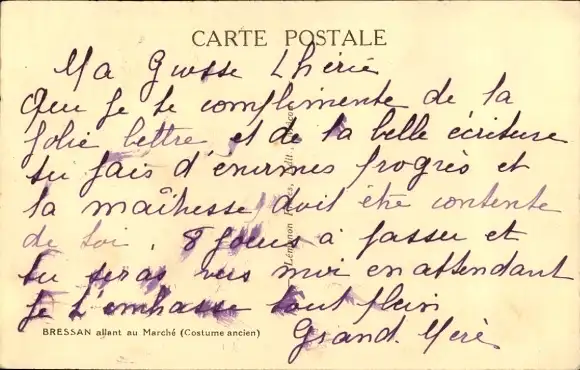 CARTE POSTALE
Ma Grosse Chérie
Que je te complimente de ta
jolie lettre et de ta belle écriture
tu fais d'énormes progrès et
ta maîtresse doit être contente
de toi. 8 jours à passer et
tu seras vers moi en attendant
je t'embrasse tout plein
Grand. Mère
BRESSAN allant au Marché (Costume ancien)